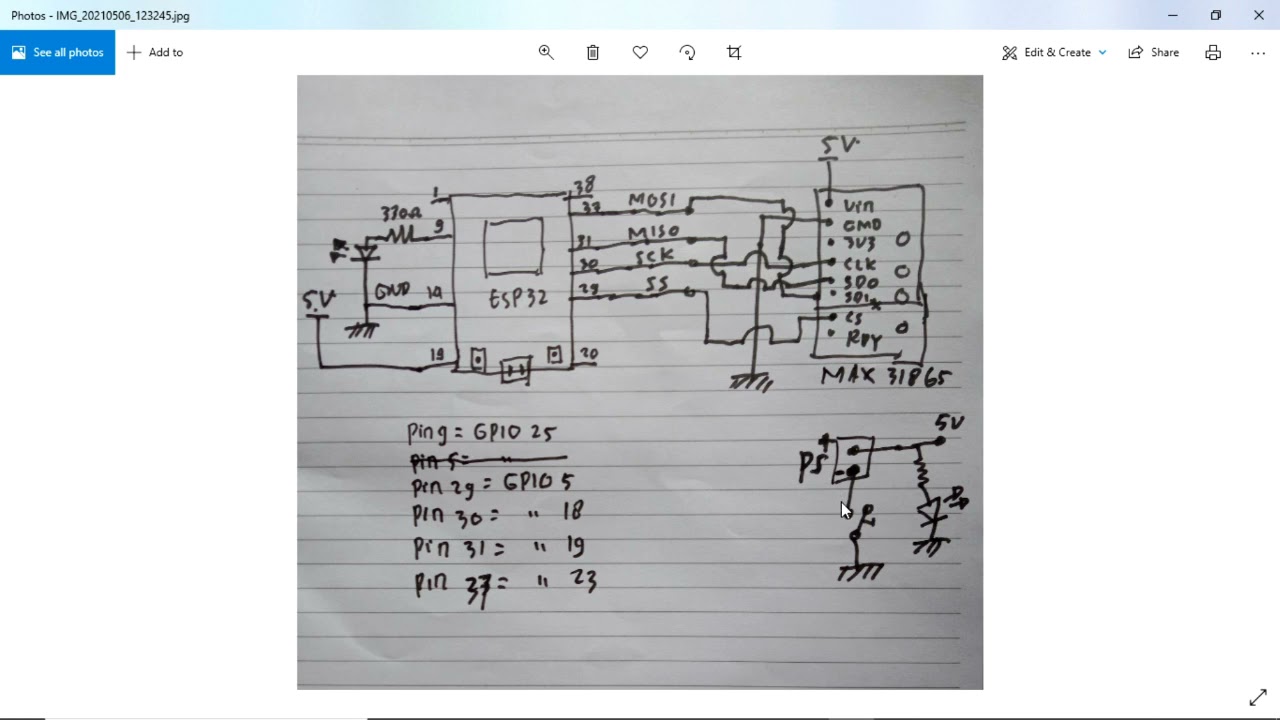 Photos - IMG_20210506_123245.jpg
See all photos
Add to
Edit & Create
Share
5V
1
38
330Ω
9
37 MOSI
31 MISO
30 SCK
29 SS
ESP32
5V
GND 14
19
20
Vin
GND
3V3
CLK
SDO
SDI
CS
RDY
MAX 31865
Pin 9 = GPIO 25
pin 5 = "
pin 29 = GPIO 5
Pin 30 = " 18
Pin 31 = " 19
Pin 37 = " 23
5V
+
PS
-